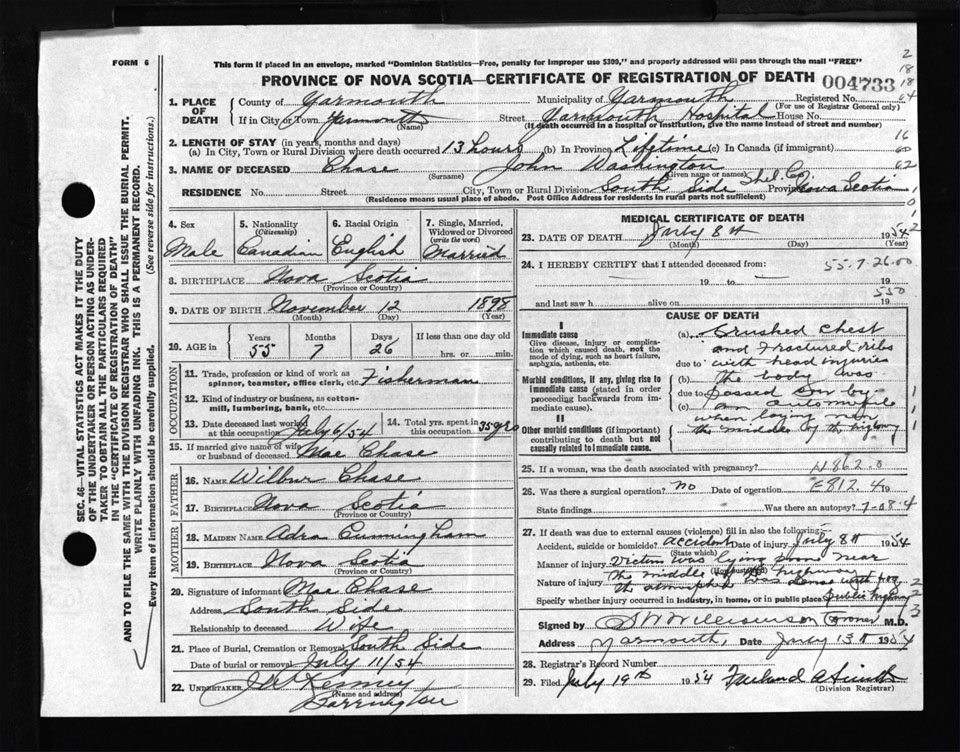 FORM 6
This form if placed in an envelope, marked "Dominion Statistics—Free, penalty for improper use $300," and properly addressed will pass through the mail "FREE"
PROVINCE OF NOVA SCOTIA—CERTIFICATE OF REGISTRATION OF DEATH
004733
2
18
18
64
1. PLACE OF DEATH
County of Yarmouth Municipality of Yarmouth Registered No.
(For use of Registrar General only)
If in City or Town Yarmouth Street Yarmouth Hospital House No.
(Name) (If death occurred in a hospital or institution, give the name instead of street and number)
2. LENGTH OF STAY (in years, months and days)
(a) In City, Town or Rural Division where death occurred 13 hours (b) In Province Lifetime (c) In Canada (if immigrant)
16
60
62
3. NAME OF DECEASED Chase John Washington
(Surname) (Given name or names)
RESIDENCE No. Street City, Town or Rural Division South Side Shel. Co. Province Nova Scotia
(Residence means usual place of abode. Post Office Address for residents in rural parts not sufficient)
SEC. 46—VITAL STATISTICS ACT MAKES IT THE DUTY
OF THE UNDERTAKER OR PERSON ACTING AS UNDER-
TAKER TO OBTAIN ALL THE PARTICULARS REQUIRED
IN THE "CERTIFICATE OF REGISTRATION OF DEATH"
AND TO FILE THE SAME WITH THE DIVISION REGISTRAR WHO SHALL ISSUE THE BURIAL PERMIT.
WRITE PLAINLY WITH UNFADING INK. THIS IS A PERMANENT RECORD.
Every item of information should be carefully supplied. (See reverse side for instructions.)
4. Sex
Male
5. Nationality
(Citizenship)
Canadian
6. Racial Origin
English
7. Single, Married, Widowed or Divorced
(write the word)
Married
8. BIRTHPLACE Nova Scotia
(Province or Country)
9. DATE OF BIRTH November 12 1898
(Month) (Day) (Year)
10. AGE in
Years Months Days If less than one day old
55 7 26 hrs. or min.
OCCUPATION
11. Trade, profession or kind of work as
spinner, teamster, office clerk, etc. Fisherman
12. Kind of industry or business, as cotton-
mill, lumbering, bank, etc.
13. Date deceased last worked
at this occupation July 6/54
14. Total yrs. spent in
this occupation 35 yrs
15. If married give name of wife
or husband of deceased Mae Chase
FATHER
16. NAME Wilbur Chase
17. BIRTHPLACE Nova Scotia
(Province or Country)
MOTHER
18. MAIDEN NAME Adra Cunningham
19. BIRTHPLACE Nova Scotia
(Province or Country)
20. Signature of informant Mae Chase
Address South Side
Relationship to deceased Wife
21. Place of Burial, Cremation or Removal South Side
Date of burial or removal July 11/54
22. UNDERTAKER
(Name and address)
Barrington
MEDICAL CERTIFICATE OF DEATH
23. DATE OF DEATH July 8th 1954
(Month) (Day) (Year)
24. I HEREBY CERTIFY that I attended deceased from:
55-7-26-00
19 to 19
550
and last saw h alive on 19
CAUSE OF DEATH
I
Immediate cause
Give disease, injury or complica-
tion which caused death, not the
mode of dying, such as heart failure,
asphyxia, asthenia, etc.
Morbid conditions, if any, giving rise to
immediate cause (stated in order
proceeding backwards from im-
mediate cause).
II
Other morbid conditions (if important)
contributing to death but not
causally related to immediate cause.
(a) Crushed Chest
and fractured ribs
due to with head injuries
(b) The body was
due to passed on by
(c) an automobile
when laying near
the middle of the highway
25. If a woman, was the death associated with pregnancy? N862.0
26. Was there a surgical operation? No Date of operation E812.4 19
State findings Was there an autopsy? 7-08.4
27. If death was due to external causes (violence) fill in also the following:—
Accident, suicide or homicide? accident Date of injury July 8th 1954
(State which)
Manner of injury Victim was lying down near
the middle of the highway
Nature of injury the atmosphere was dense with fog
Specify whether injury occurred in industry, in home, or in public place public highway
Signed by Coroner M.D.
Address Yarmouth, Date July 13th 1954
28. Registrar's Record Number
29. Filed July 19th 1954
(Division Registrar)